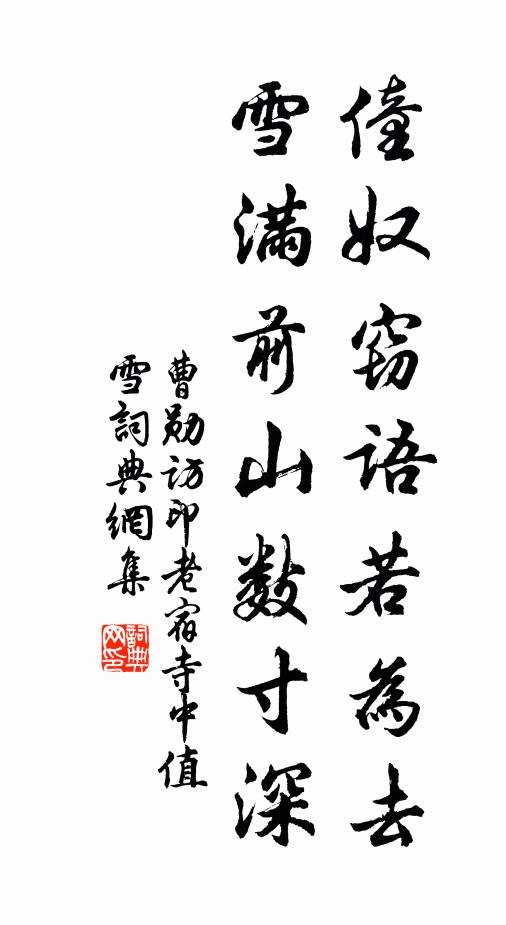 僮奴窃語若為去
雪满前山数寸深
曹勋訪印老宿寺中值
雪詞典網集
詞典
网印